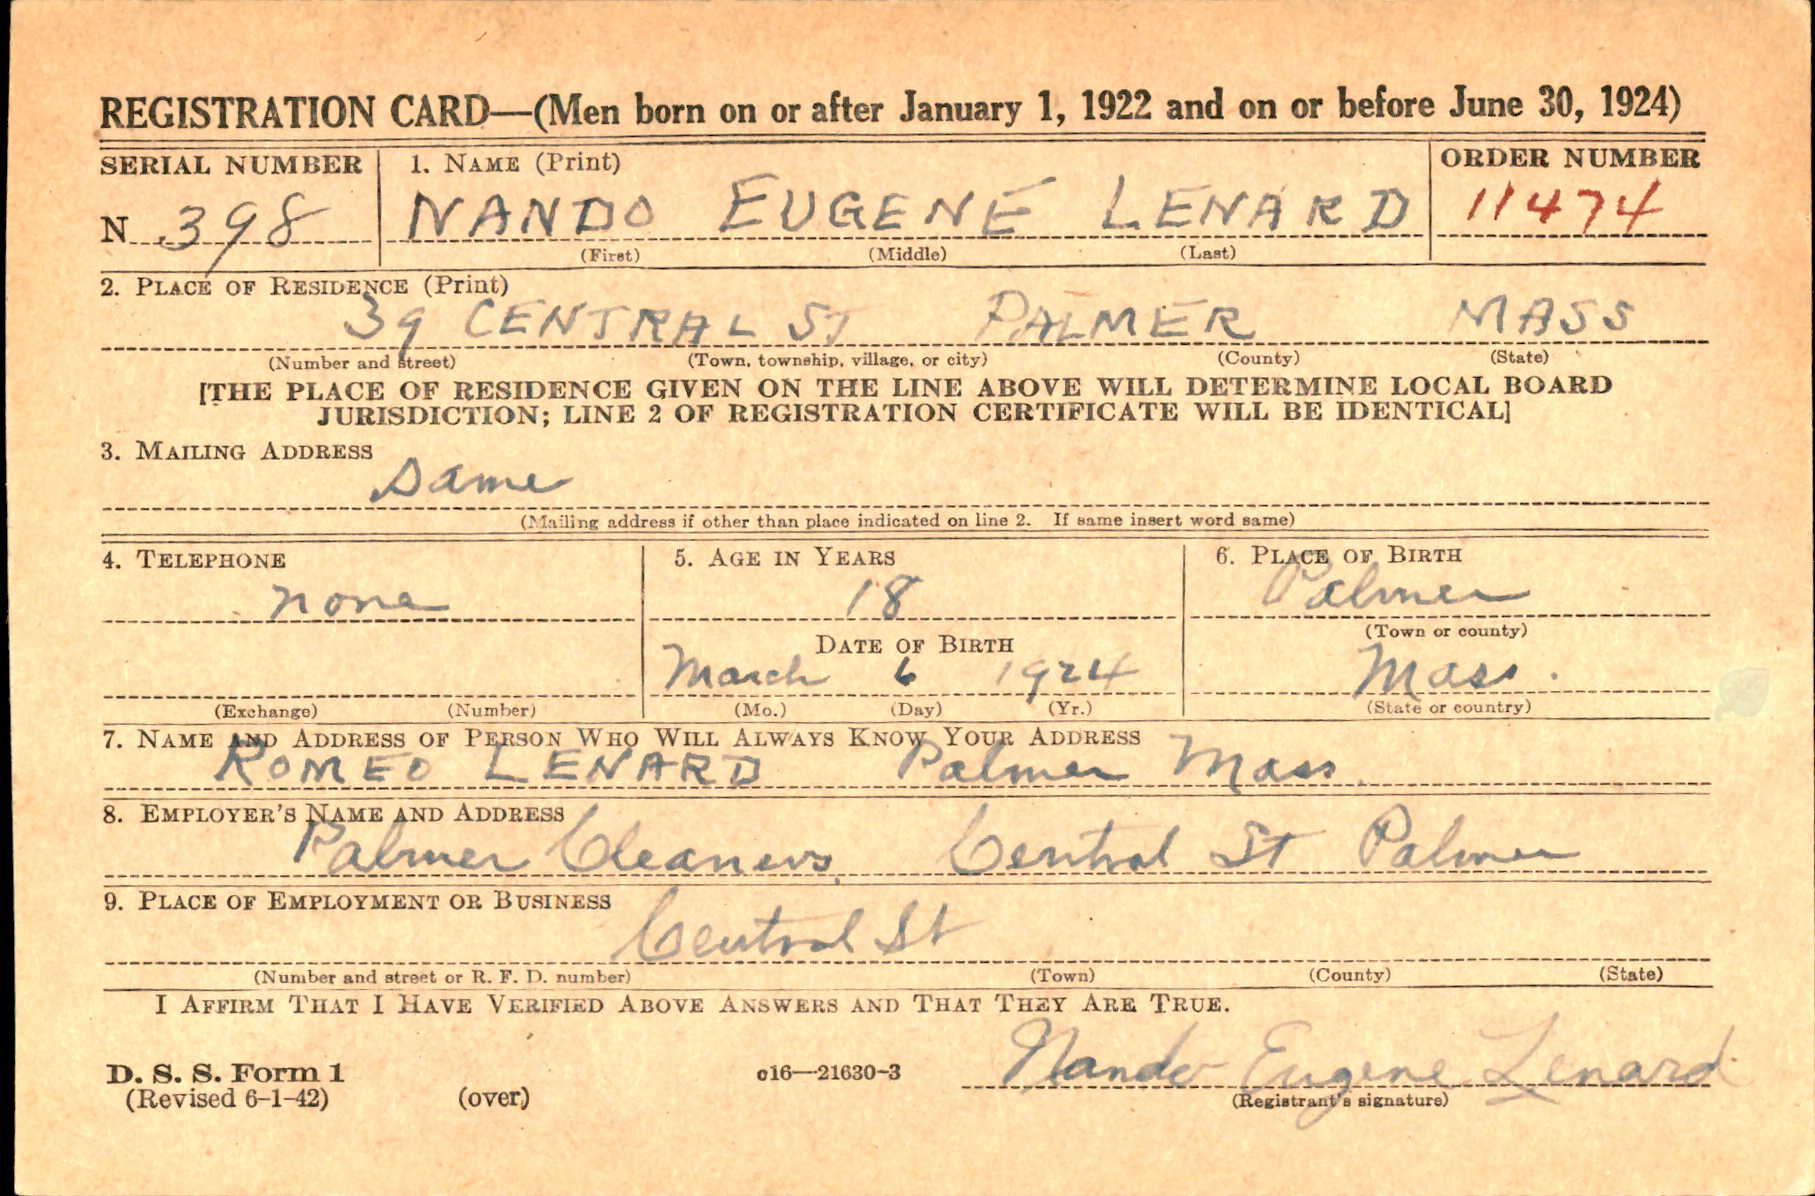 REGISTRATION CARD—(Men born on or after January 1, 1922 and on or before June 30, 1924)
SERIAL NUMBER 1. NAME (Print) ORDER NUMBER
N 398 NANDO EUGENE LENARD 11474
(First) (Middle) (Last)
2. PLACE OF RESIDENCE (Print)
39 CENTRAL ST PALMER MASS
(Number and street) (Town, township, village, or city) (County) (State)
[THE PLACE OF RESIDENCE GIVEN ON THE LINE ABOVE WILL DETERMINE LOCAL BOARD
JURISDICTION; LINE 2 OF REGISTRATION CERTIFICATE WILL BE IDENTICAL]
3. MAILING ADDRESS
Same
(Mailing address if other than place indicated on line 2. If same insert word same)
4. TELEPHONE 5. AGE IN YEARS 6. PLACE OF BIRTH
none 18 Palmer
(Town or county)
DATE OF BIRTH
March 6 1924 Mass.
(Exchange) (Number) (Mo.) (Day) (Yr.) (State or country)
7. NAME AND ADDRESS OF PERSON WHO WILL ALWAYS KNOW YOUR ADDRESS
ROMEO LENARD Palmer Mass.
8. EMPLOYER'S NAME AND ADDRESS
Palmer Cleaners Central St Palmer
9. PLACE OF EMPLOYMENT OR BUSINESS
Central St
(Number and street or R. F. D. number) (Town) (County) (State)
I AFFIRM THAT I HAVE VERIFIED ABOVE ANSWERS AND THAT THEY ARE TRUE.
D. S. S. Form 1 c16—21630-3 Nando Eugene Lenard
(Revised 6-1-42) (over) (Registrant's signature)